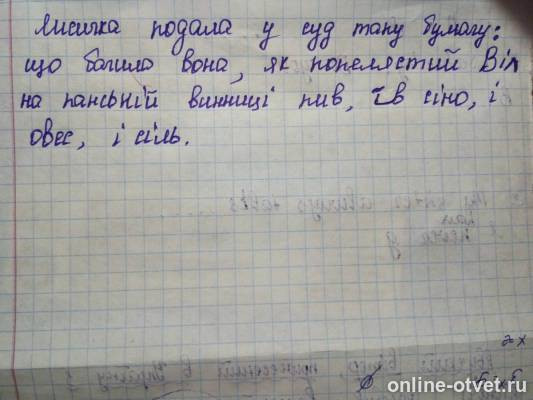 Лисичка подала у суд таку бумагу:
що бачила вона, як попелястий Віл
на панській винниці пив, їв сіно, і
овес, і сіль.
online-otvet.ru